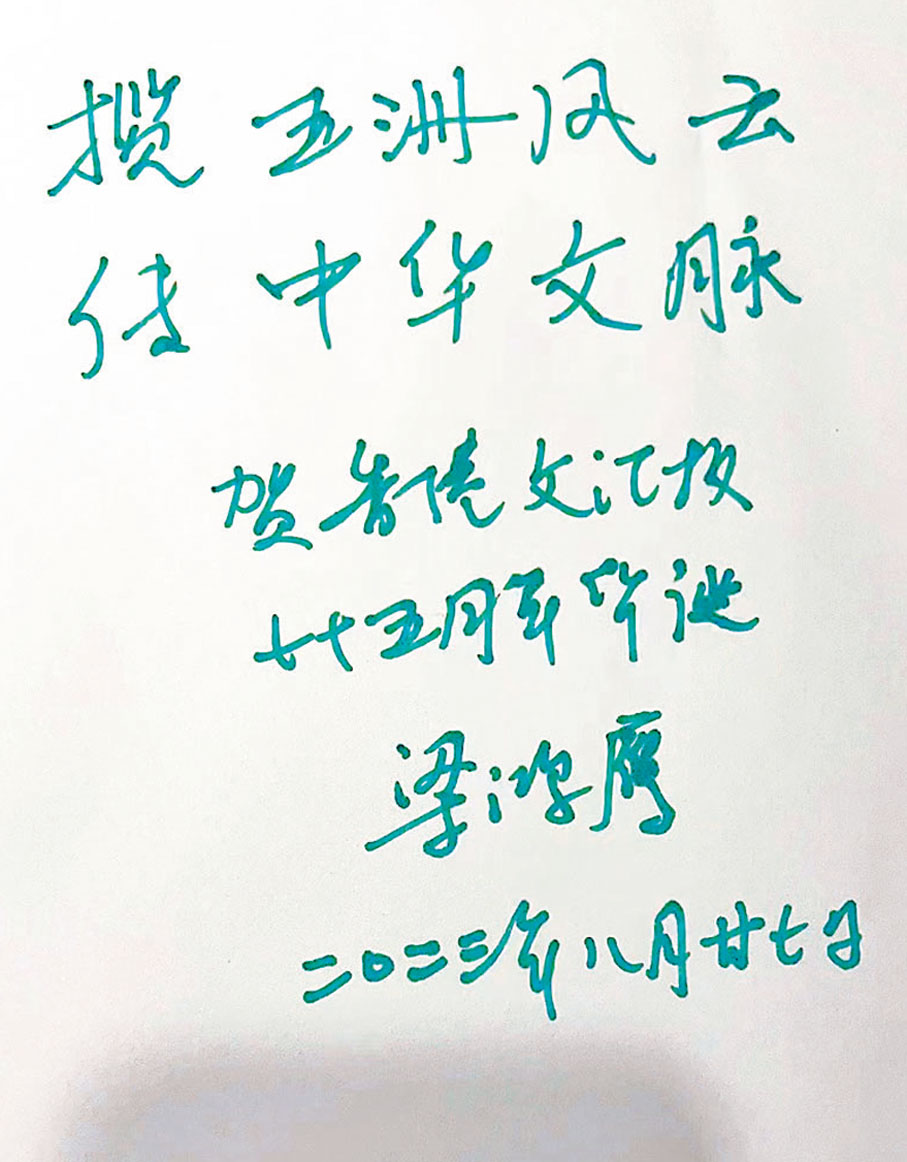 揽五洲风云
传中华文脉
贺香港文汇报
七十五周年华诞
梁鸿鹰
二〇二三年八月廿七日